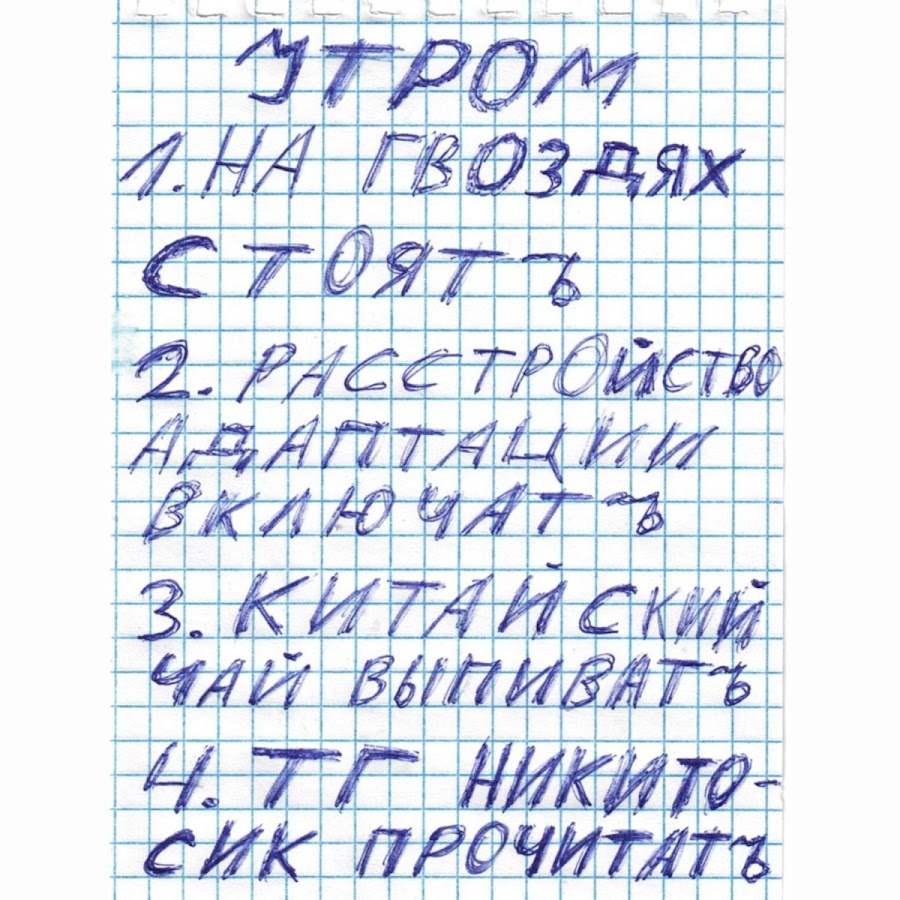 УТРОМ
1. НА ГВОЗДЯХ
СТОЯТЪ
2. РАССТРОЙСТВО
АДАПТАЦИИ
ВКЛЮЧАТЪ
3. КИТАЙСКИЙ
ЧАЙ ВЫПИВАТЪ
4. ТГ НИКИТО-
СИК ПРОЧИТАТЪ